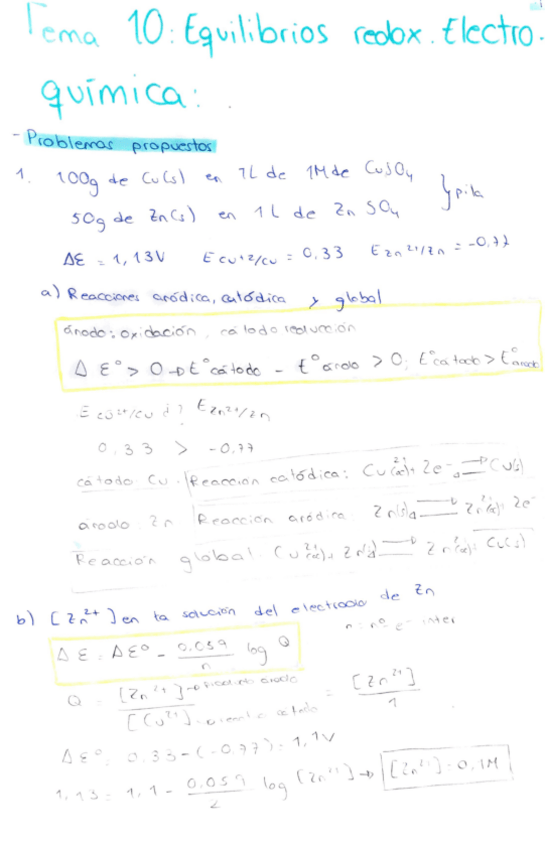 Tema 10: Equilibrios redox. Electro-
química:
- Problemas propuestos
1. 100g de Cu(s) en 1L de 1M de CuSO4
50g de Zn(s) en 1L de ZnSO4 } pila
ΔE = 1,13V E Cu+2/Cu = 0,33 E Zn2+/Zn = -0,77
a) Reacciones anódica, catódica y global
ánodo: oxidación, cátodo reducción
Δ E° > 0 → E° cátodo - E° ánodo > 0; E° cátodo > E° ánodo
E Cu2+/Cu ¿? E Zn2+/Zn
0,33 > -0,77
cátodo: Cu. Reacción catódica: Cu2+(ac) + 2e- ⇌ Cu(s)
ánodo: Zn Reacción anódica: Zn(s) ⇌ Zn2+(ac) + 2e-
Reacción global: Cu2+(ac) + Zn(s) ⇌ Zn2+(ac) + Cu(s)
b) [Zn2+] en la solución del electrodo de Zn
ΔE = ΔE° - 0.059/n log Q n = nº e- inter
Q = [Zn2+] → ánodo / [Cu2+] → cátodo = [Zn2+]/1
ΔE° = 0.33 - (-0.77) = 1,1V
1,13 = 1,1 - 0.059/2 log [Zn2+] → [Zn2+] = 0,1M